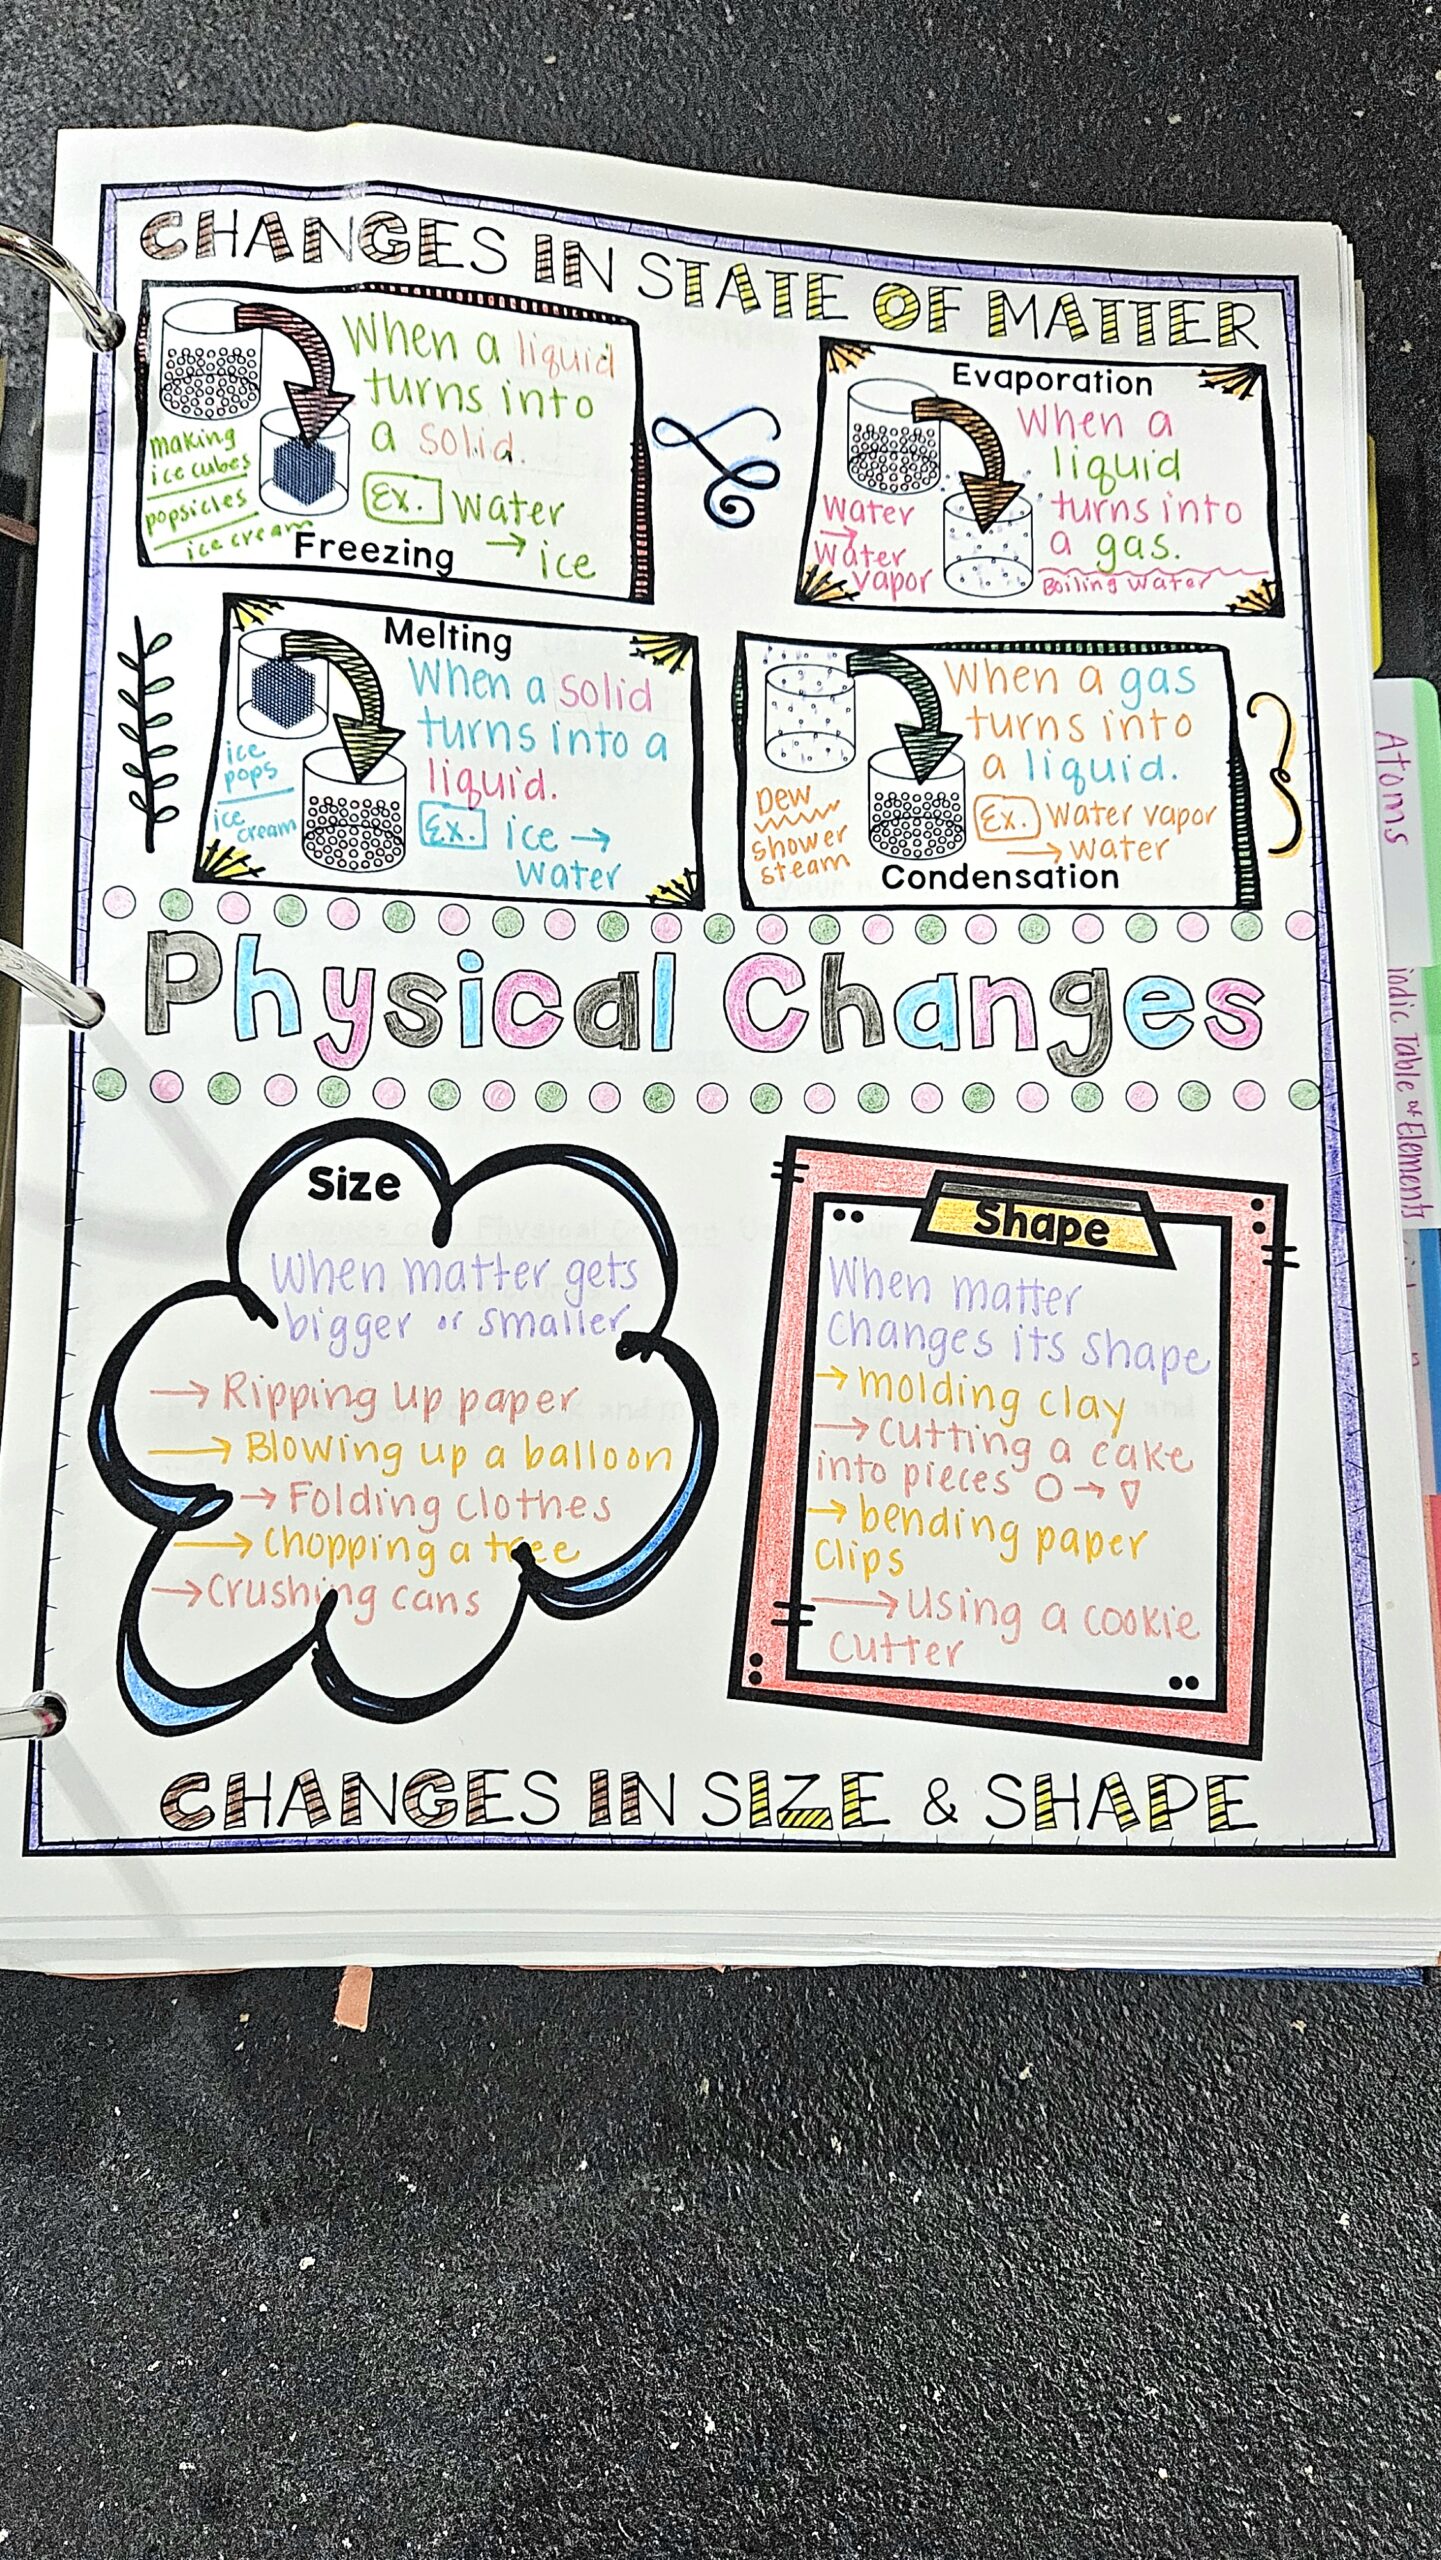 CHANGES IN STATE OF MATTER
When a liquid
turns into
a solid.
Ex. Water
→ ice
making
ice cubes
popsicles
ice cream
Freezing
Evaporation
When a
liquid
turns into
a gas.
Boiling water
Water
→
Water
vapor
Melting
When a solid
turns into a
liquid.
Ex. ice →
Water
ice
pops
ice
cream
When a gas
turns into
a liquid.
Ex. Water vapor
→ water
Dew
shower
steam
Condensation
Physical Changes
Size
When matter gets
bigger or smaller
→ Ripping up paper
→ Blowing up a balloon
→ Folding clothes
→ Chopping a tree
→ Crushing cans
Shape
When matter
changes its shape
→ molding clay
→ cutting a cake
into pieces O → ▽
→ bending paper
clips
→ using a cookie
cutter
CHANGES IN SIZE & SHAPE
Atoms
iodic Table of Elements